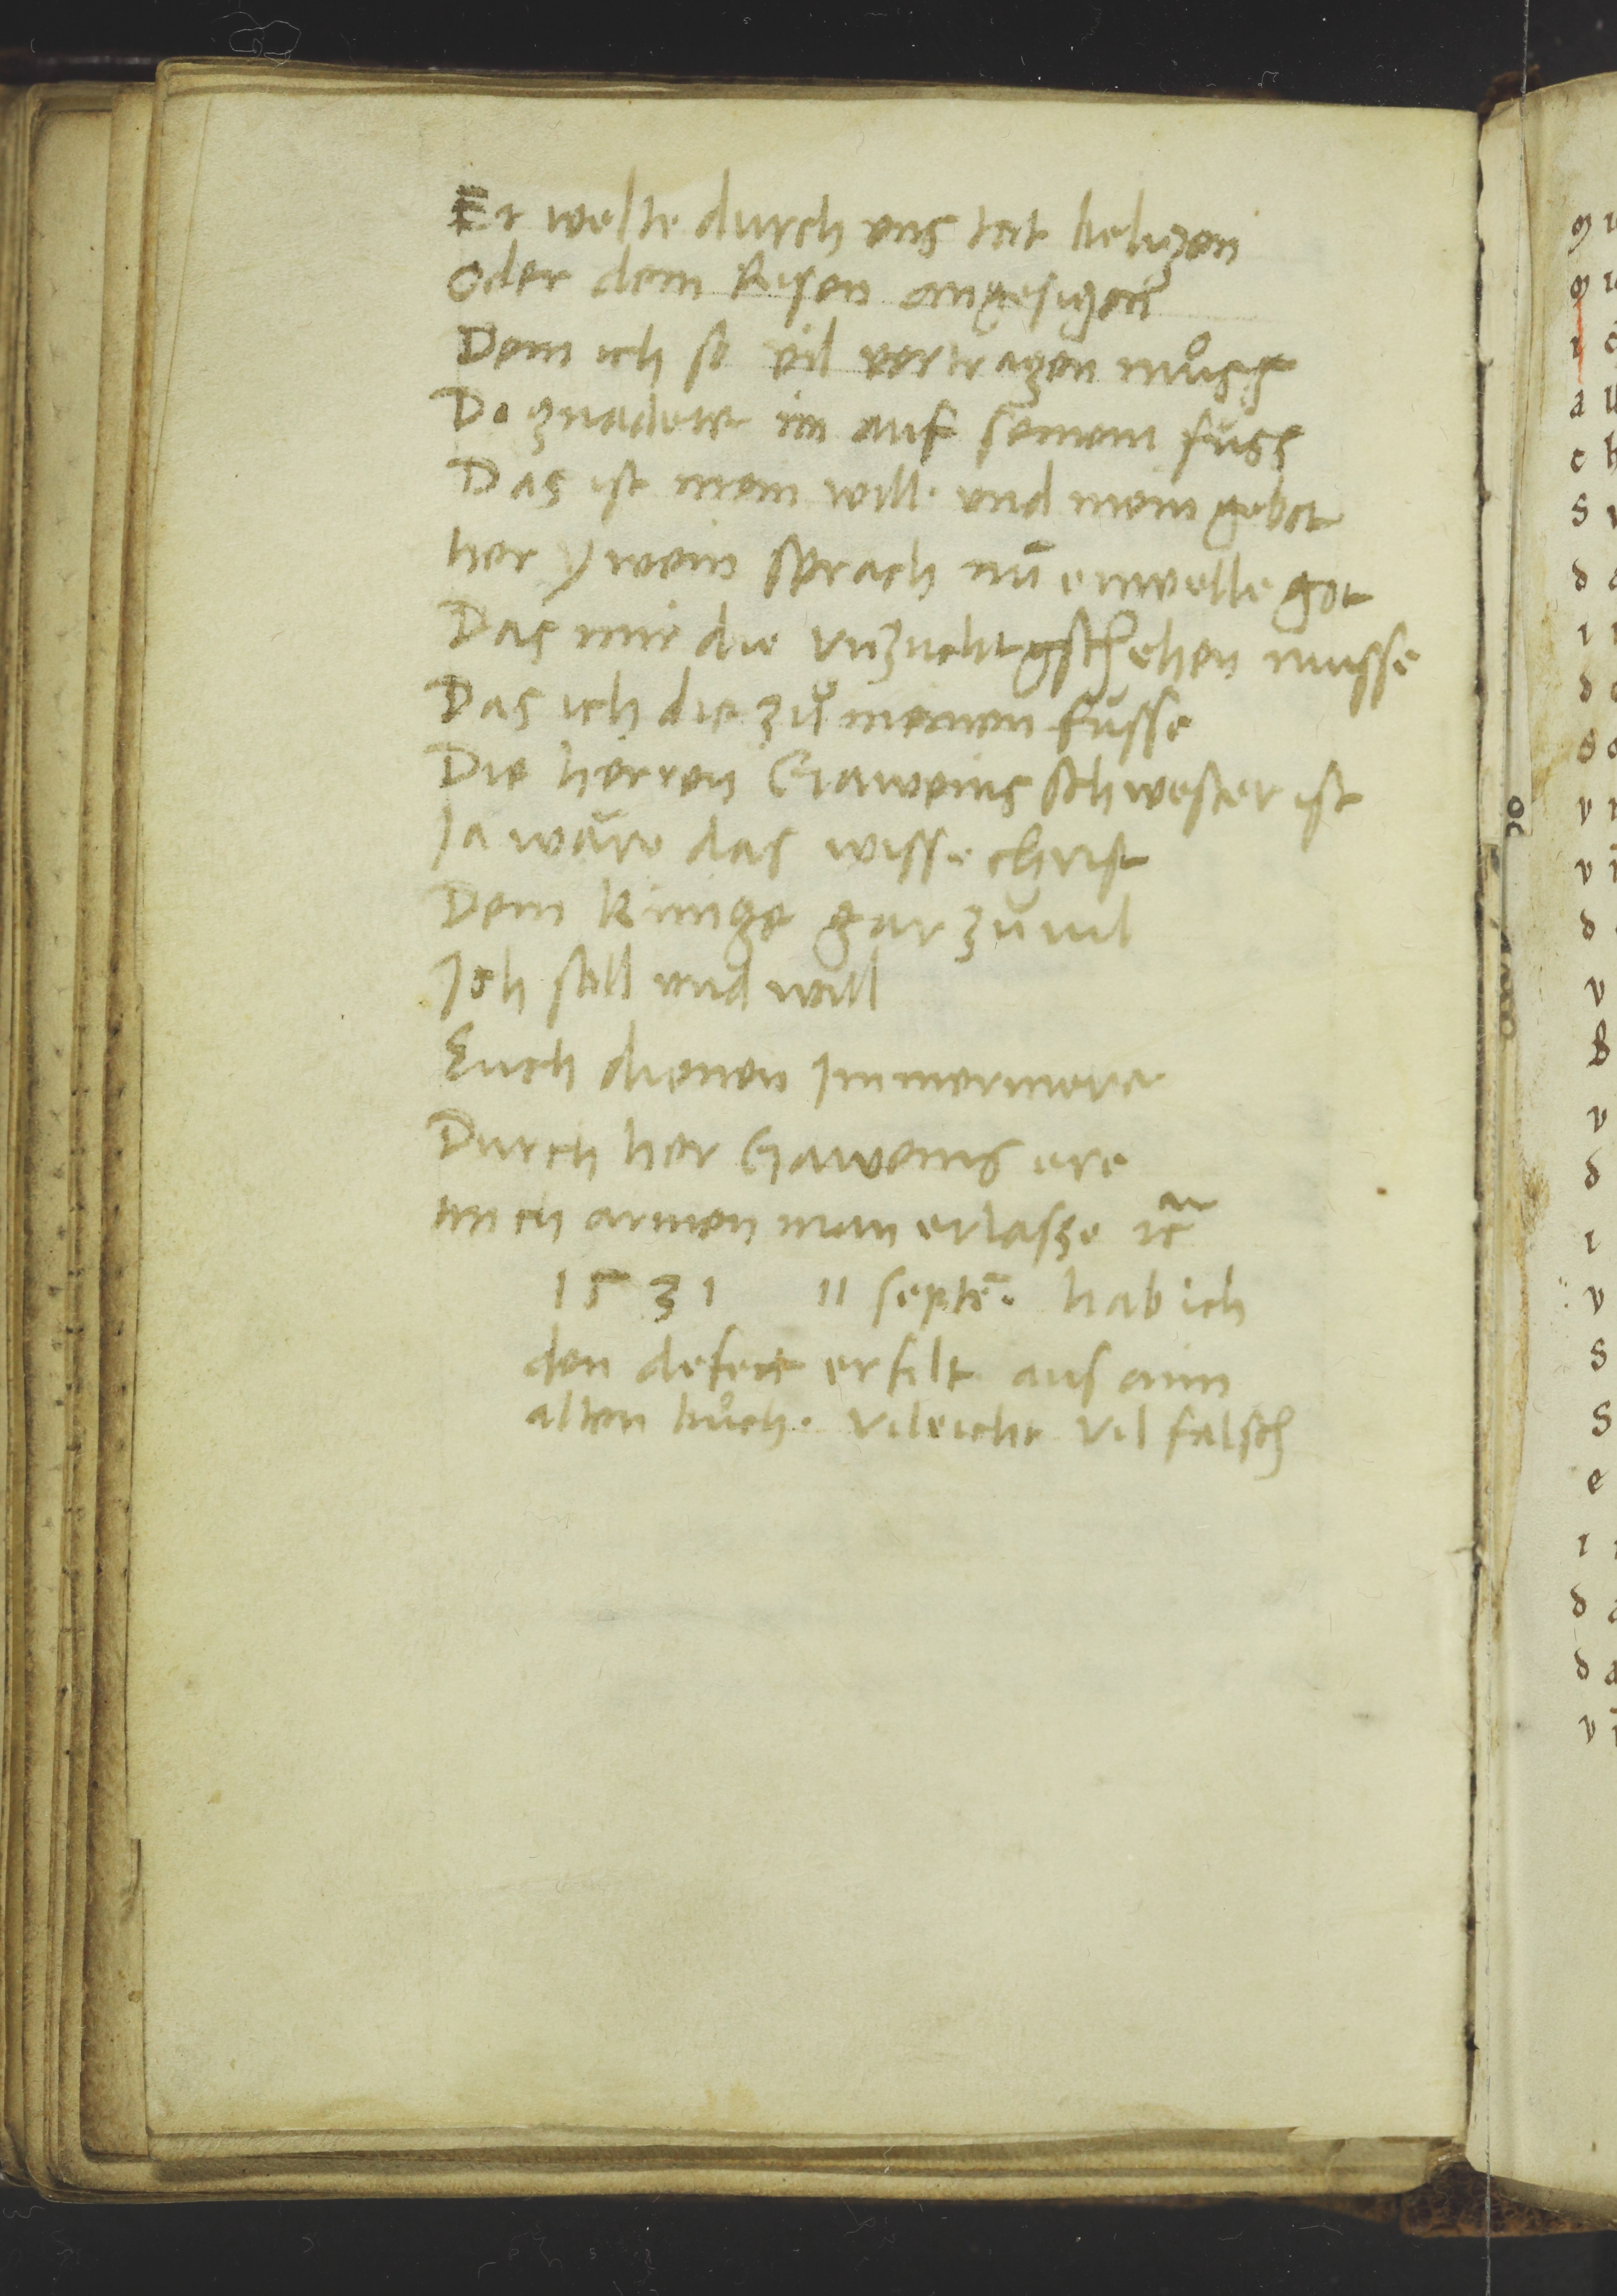 Er welte durch vns tot beligen
Oder dem Risen angesigen
Dem ich so vil vertragen můss
Do gnadett im auf seinem fuss
Das ist mein will. vnd mein gebot
her ywein sprach nū enwelle got
Das mir die vnzucht gschehen musse
Das ich die zů meinen fusse
Die herren Gaweins schwester ist
Ja wäre das wisse christ
Dem Kunige gar zuuil
Ich soll vnd will
Euch dienen Jmmermere
Durch her Gaweins ere
mich armen man erlasze ꝛc̄
1531 11 septē. hab ich
den defect erfilt aus aim
alten bůch. vileicht vil falsch